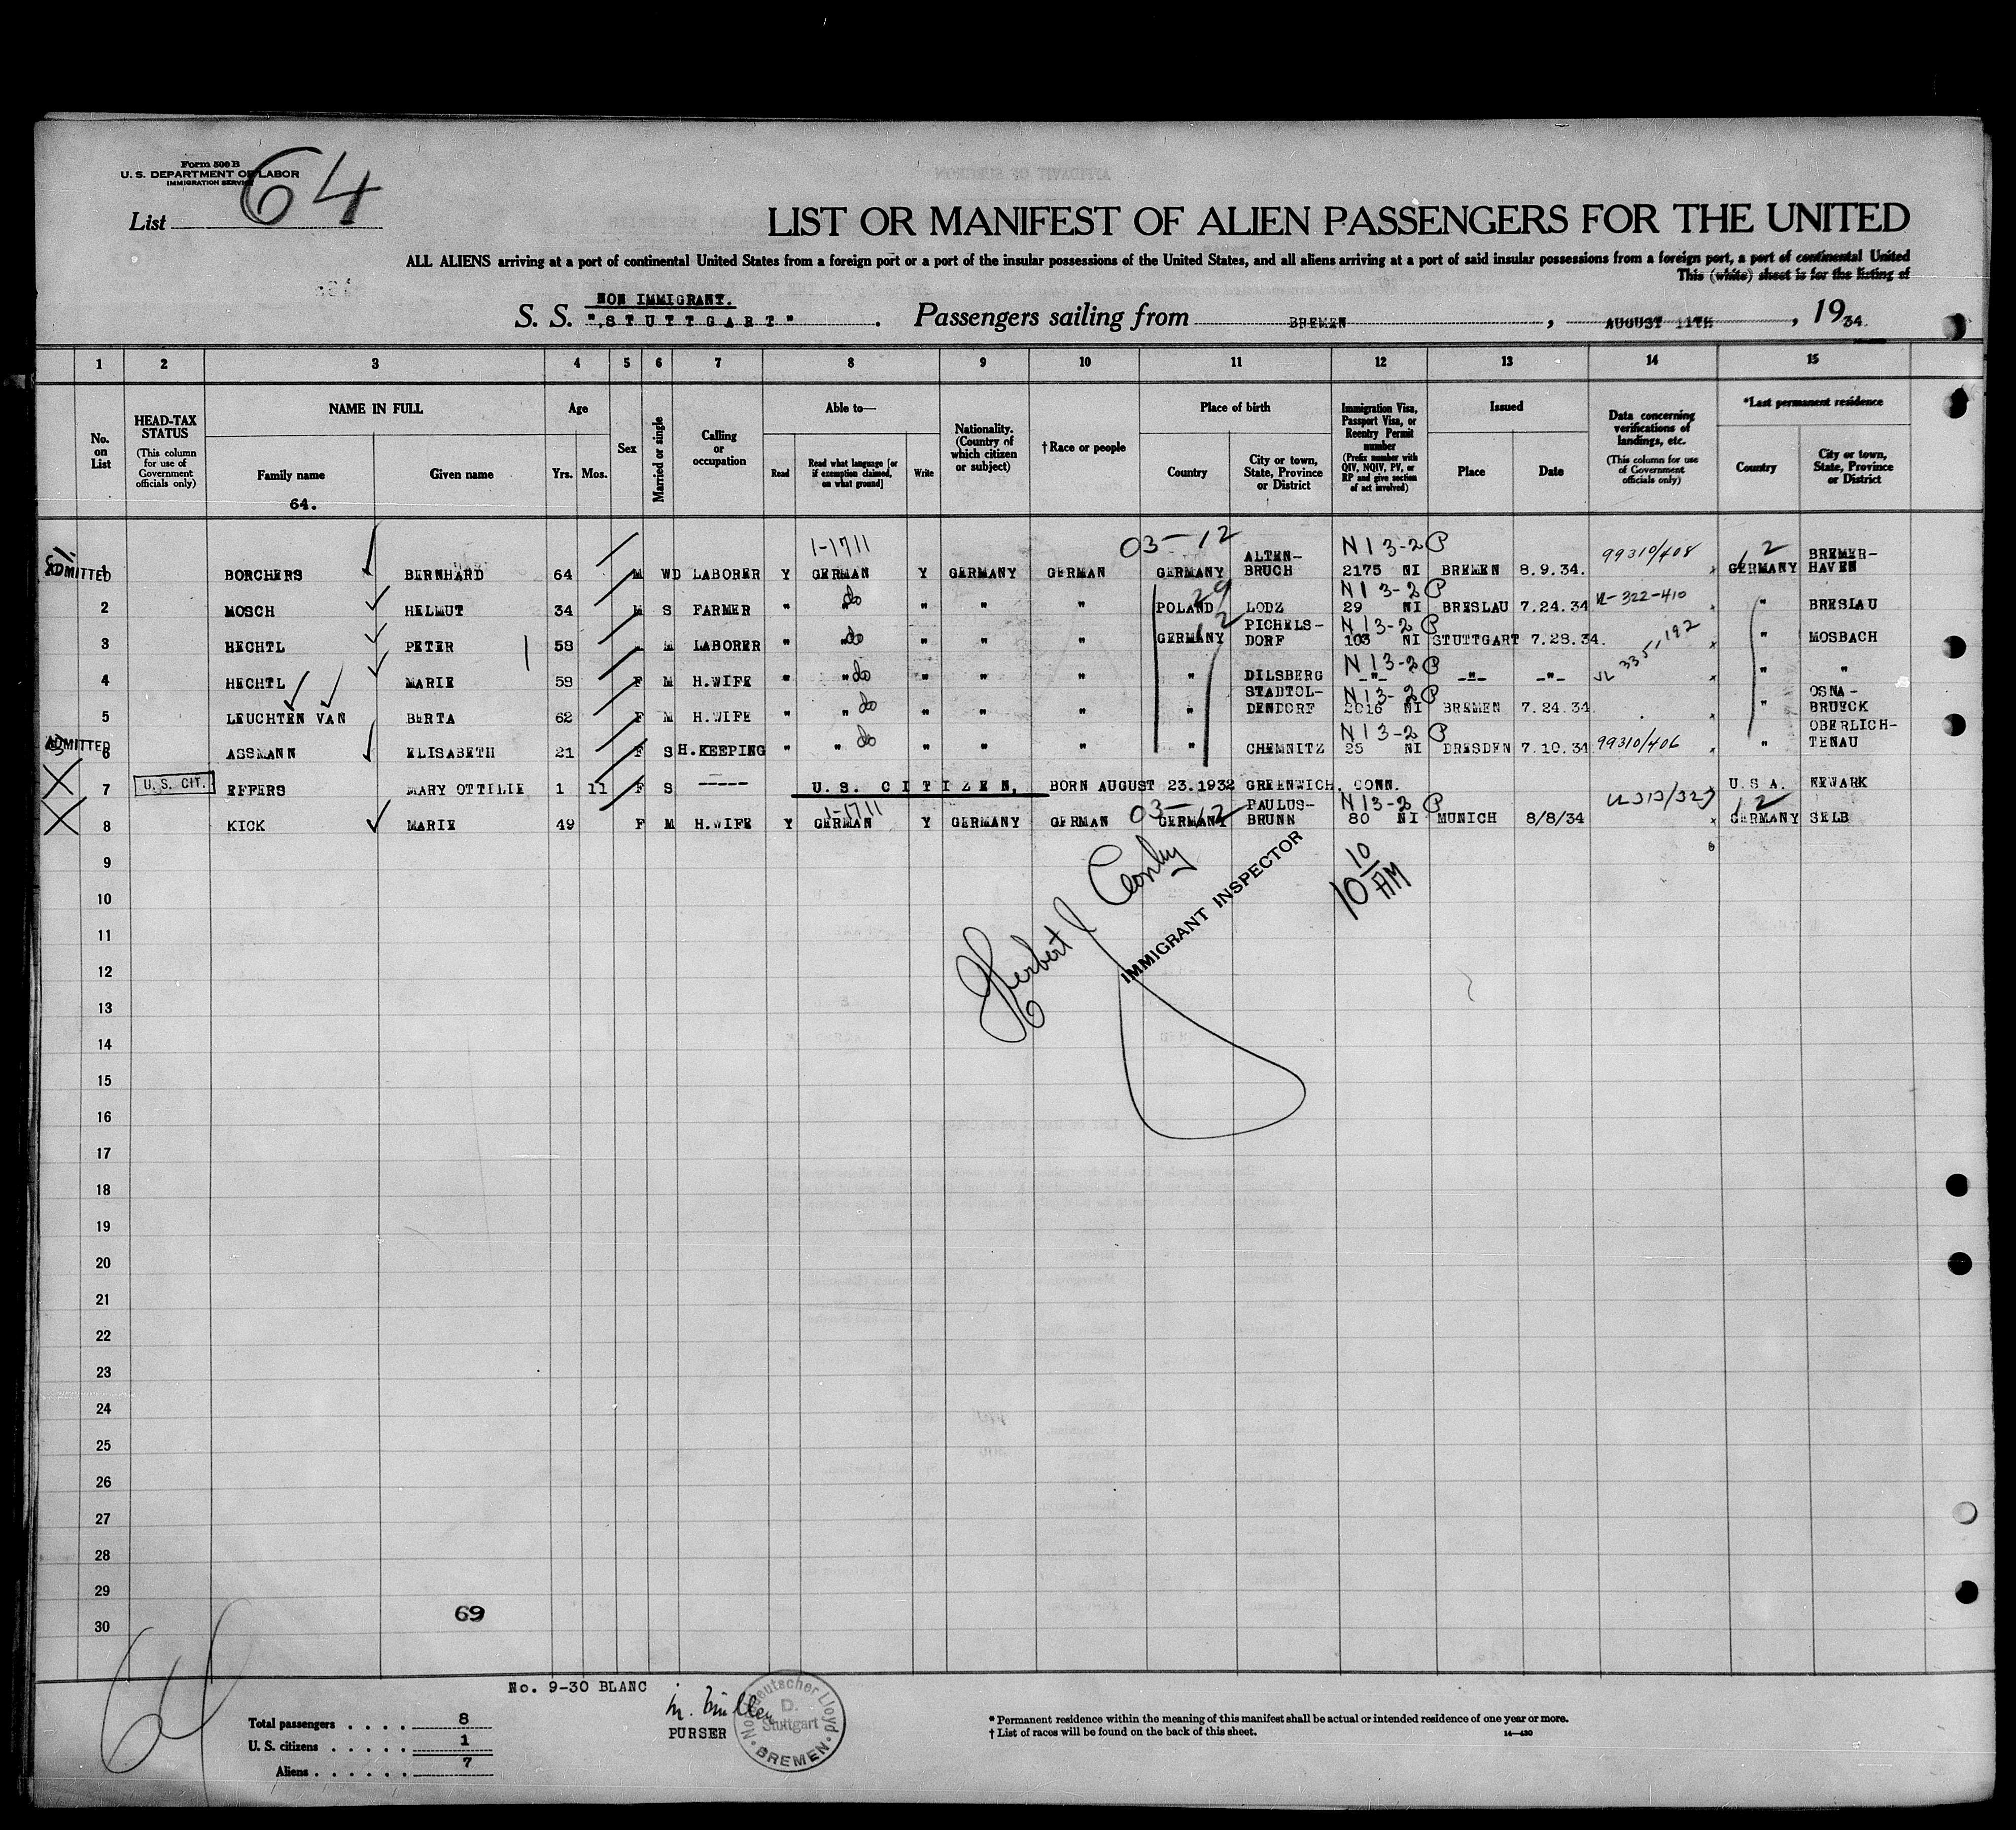 Form 500 B
U. S. DEPARTMENT OF LABOR
IMMIGRATION SERVICE
List 64
LIST OR MANIFEST OF ALIEN PASSENGERS FOR THE UNITED
ALL ALIENS arriving at a port of continental United States from a foreign port or a port of the insular possessions of the United States, and all aliens arriving at a port of said insular possessions from a foreign port, a port of continental United
This (white) sheet is for the listing of
NON IMMIGRANT.
S. S. "STUTTGART" . Passengers sailing from BREMEN , AUGUST 11TH , 1934.
1 2 3 4 5 6 7 8 9 10 11 12 13 14 15
No. on List
HEAD-TAX STATUS
(This column for use of Government officials only)
NAME IN FULL
Family name Given name
64.
Age
Yrs. Mos.
Sex
Married or single
Calling or occupation
Able to—
Read
Read what language [or if exemption claimed, on what ground]
Write
Nationality. (Country of which citizen or subject)
† Race or people
Place of birth
Country
City or town, State, Province or District
Immigration Visa, Passport Visa, or Reentry Permit number
(Prefix number with QIV, NQIV, PV, or RP and give section of act involved)
Issued
Place Date
Data concerning verifications of landings, etc.
(This column for use of Government officials only)
*Last permanent residence
Country
City or town, State, Province or District
1-1711 03-12 N I 3-2 P 99310/408 12
ADMITTED 1 BORCHERS BERNHARD 64 M WD LABORER Y GERMAN Y GERMANY GERMAN GERMANY ALTEN-BRUCH 2175 NI BREMEN 8.9.34. GERMANY BREMER-HAVEN
do 29 N I 3-2 P
2 MOSCH HELMUT 34 M S FARMER " " " " " POLAND LODZ 29 NI BRESLAU 7.24.34 VL-322-410 " BRESLAU
do 12 N I 3-2 P
3 HECHTL PETER 58 M LABORER " " " " " GERMANY PICHELS-DORF 103 NI STUTTGART 7.28.34. " MOSBACH
do N I 3-2 P
4 HECHTL MARIE 58 F M H.WIFE " " " " " " DILSBERG -"- -"- -"- VL 335,192 " "
do N I 3-2 P
5 LEUCHTEN VAN BERTA 62 F M H.WIFE " " " " " " STADTOL-DENDORF 2016 NI BREMEN 7.24.34 " OSNA-BRUECK
do N I 3-2 P
ADMITTED 6 ASSMANN ELISABETH 21 F S H.KEEPING " " " " " " CHEMNITZ 25 NI DRESDEN 7.10.34 99310/406 " OBERLICH-TENAU
7 U. S. CIT. EFFERS MARY OTTILIE 1 11 F S ----- U. S. CITIZEN, BORN AUGUST 23.1932 GREENWICH, CONN. U.S A. NEWARK
1-1711 03-12 N I 3-2 P 12
8 KICK MARIE 49 F M H.WIFE Y GERMAN Y GERMANY GERMAN GERMANY PAULUS-BRUNN 80 NI MUNICH 8/8/34 GERMANY SELB
9
10
11
12
13
14
15
16
17
18
19
20
21
22
23
24
25
26
27
28
29
30
Herbert
IMMIGRANT INSPECTOR
10 10 AM
69
64
No. 9-30 BLANC
Total passengers . . . . 8
U. S. citizens . . . . . 1
Aliens . . . . . . 7
PURSER
Norddeutscher Lloyd
D. Stuttgart
BREMEN
* Permanent residence within the meaning of this manifest shall be actual or intended residence of one year or more.
† List of races will be found on the back of this sheet.
14—430